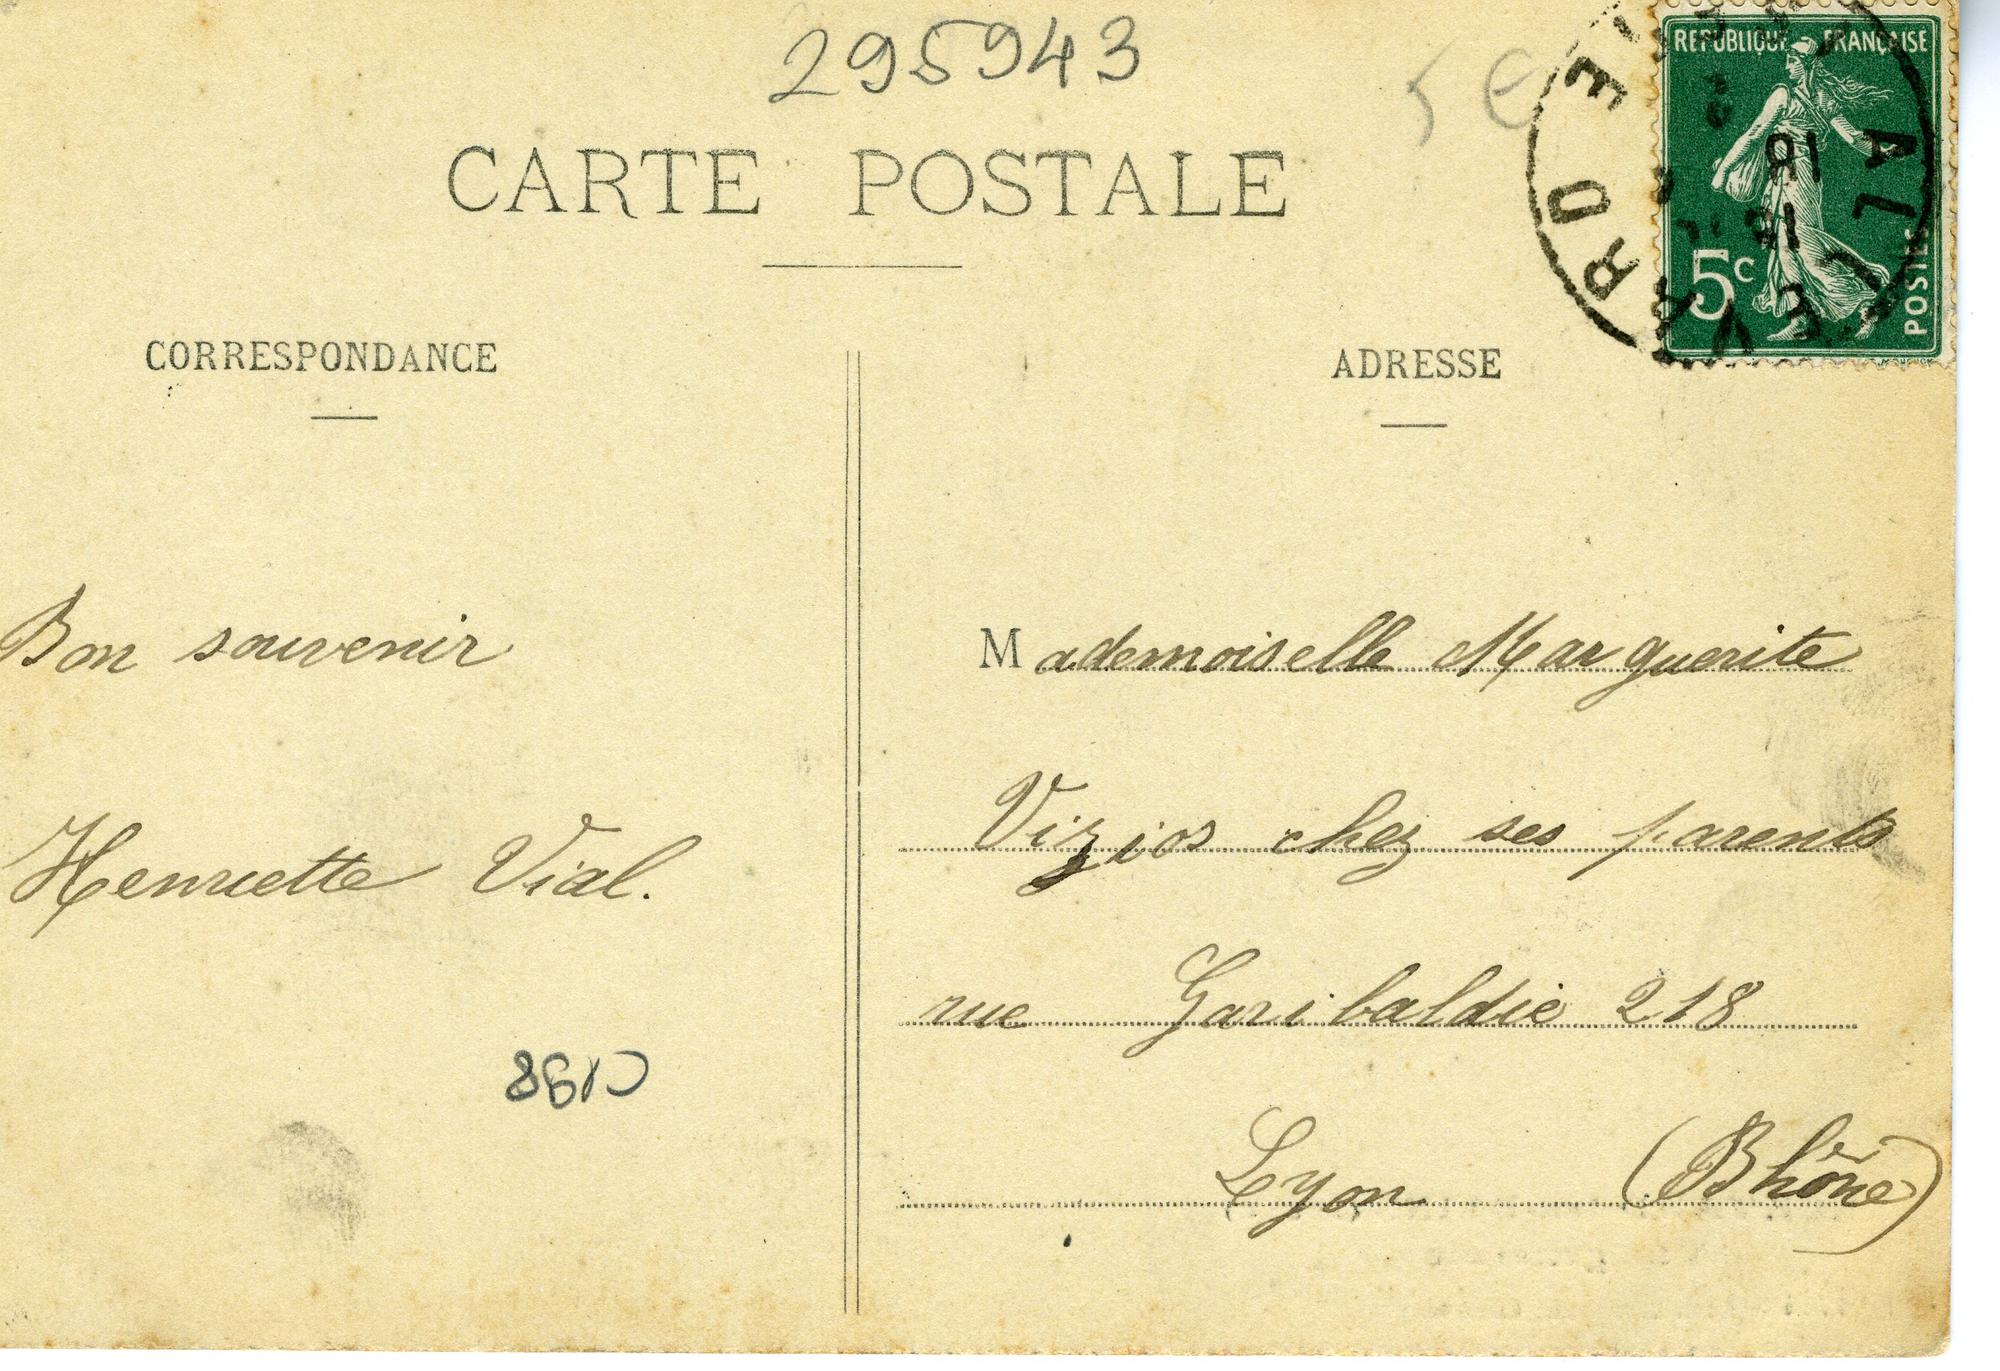 295943
5 €
CARTE POSTALE
REPUBLIQUE FRANÇAISE
5c
POSTES
ALLEVARD
CORRESPONDANCE
ADRESSE
Bon souvenir
Henriette Vial.
Mademoiselle Marguerite
Vizios chez ses parents
rue Garibaldie 218
Lyon (Rhône)